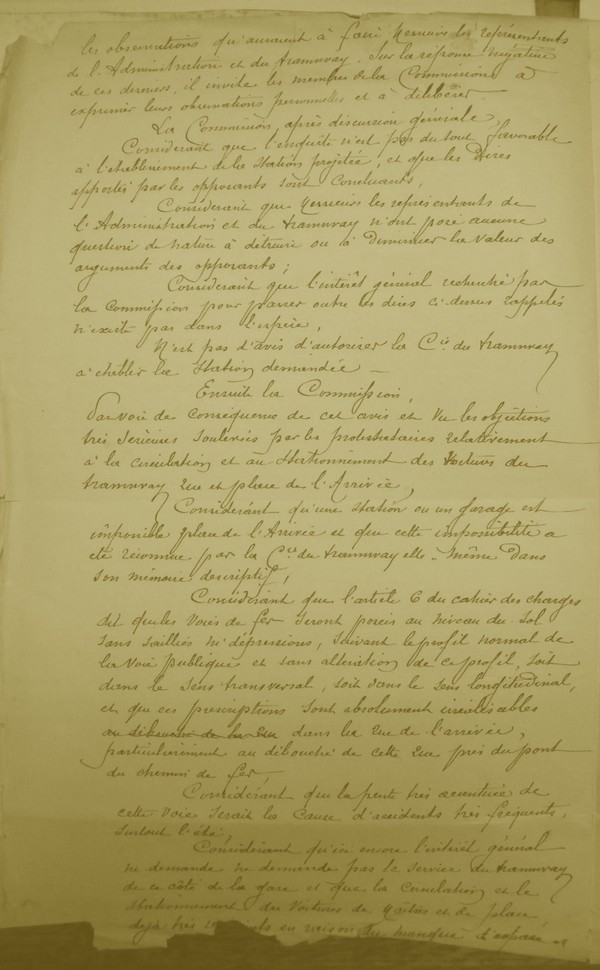 les observations qu'auraient à faire Messieurs les représentants
de l'Administration et du tramway. Sur la réponse négative
de ces derniers, il invite les membres de la Commission à
exprimer leurs observations personnelles et à délibérer.
La Commission, après discussion générale,
Considérant que l'enquête n'est pas du tout favorable
à l'établissement de la Station projetée, et que les Dires
apportés par les opposants sont concluants,
Considérant que Messieurs les représentants de
l'Administration et du tramway n'ont posé aucune
question de nature à détruire ou à diminuer la valeur des
arguments des opposants;
Considérant que l'intérêt général recherché par
la Commission pour passer outre les dires ci-dessus rappelés
n'existe pas dans l'espèce,
N'est pas d'avis d'autoriser la Cie du tramway
à établir la Station demandée –
Ensuite la Commission,
Par voie de conséquence de cet avis et vu les objections
très sérieuses soulevées par les protestataires relativement
à la circulation et au stationnement des Voitures du
tramway rue et place de l'Arrivée,
Considérant qu'une station ou un garage est
impossible place de l'Arrivée et que cette impossibilité a
été reconnue par la Cie du tramway elle-même dans
son mémoire descriptif,
Considérant que l'article 6 du cahier des charges
dit que les Voies de fer seront posées au niveau du sol
sans saillies ni dépressions, suivant le profil normal de
la voie publique et sans altération de ce profil, soit
dans le sens transversal, soit dans le sens longitudinal,
et que ces prescriptions sont absolument irréalisables
au débouché de la rue dans la rue de l'arrivée,
particulièrement au débouché de cette rue près du pont
du chemin de fer,
Considérant que la pente très accentuée de
cette voie serait la cause d'accidents très fréquents,
surtout l'été,
Considérant qu'ici encore l'intérêt général
ne demande ne demande pas le service du tramway
de ce côté de la gare et que la Circulation et le
stationnement des Voitures de Maîtres et de place,
déjà très en raison du manque d'espace et